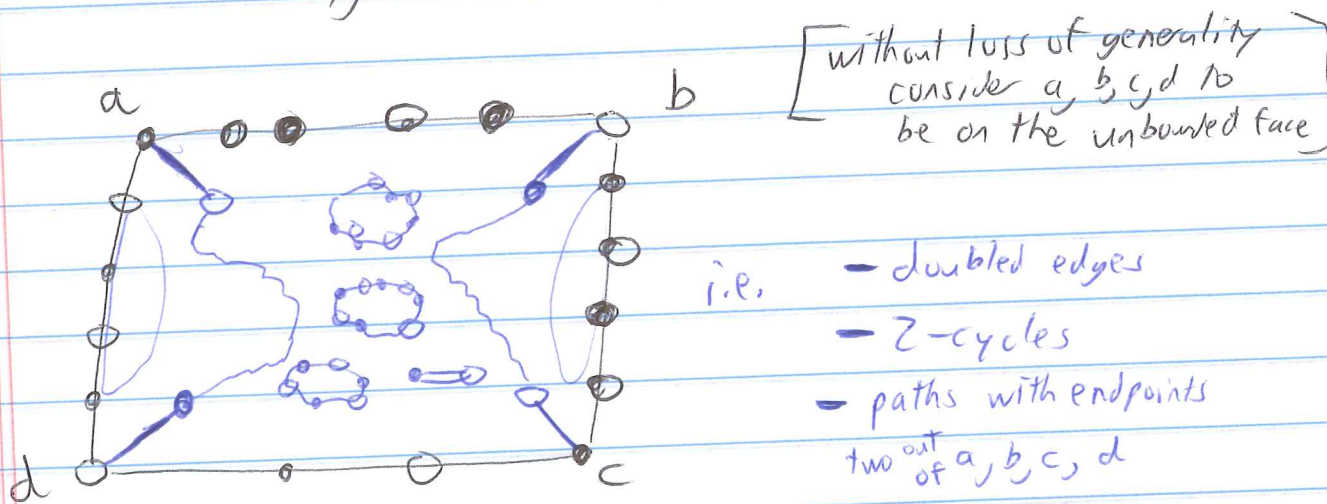 [without loss of generality
consider a, b, c, d to
be on the unbounded face]
a
b
i.e. – doubled edges
– 2-cycles
– paths with endpoints
two out of a, b, c, d
d
c